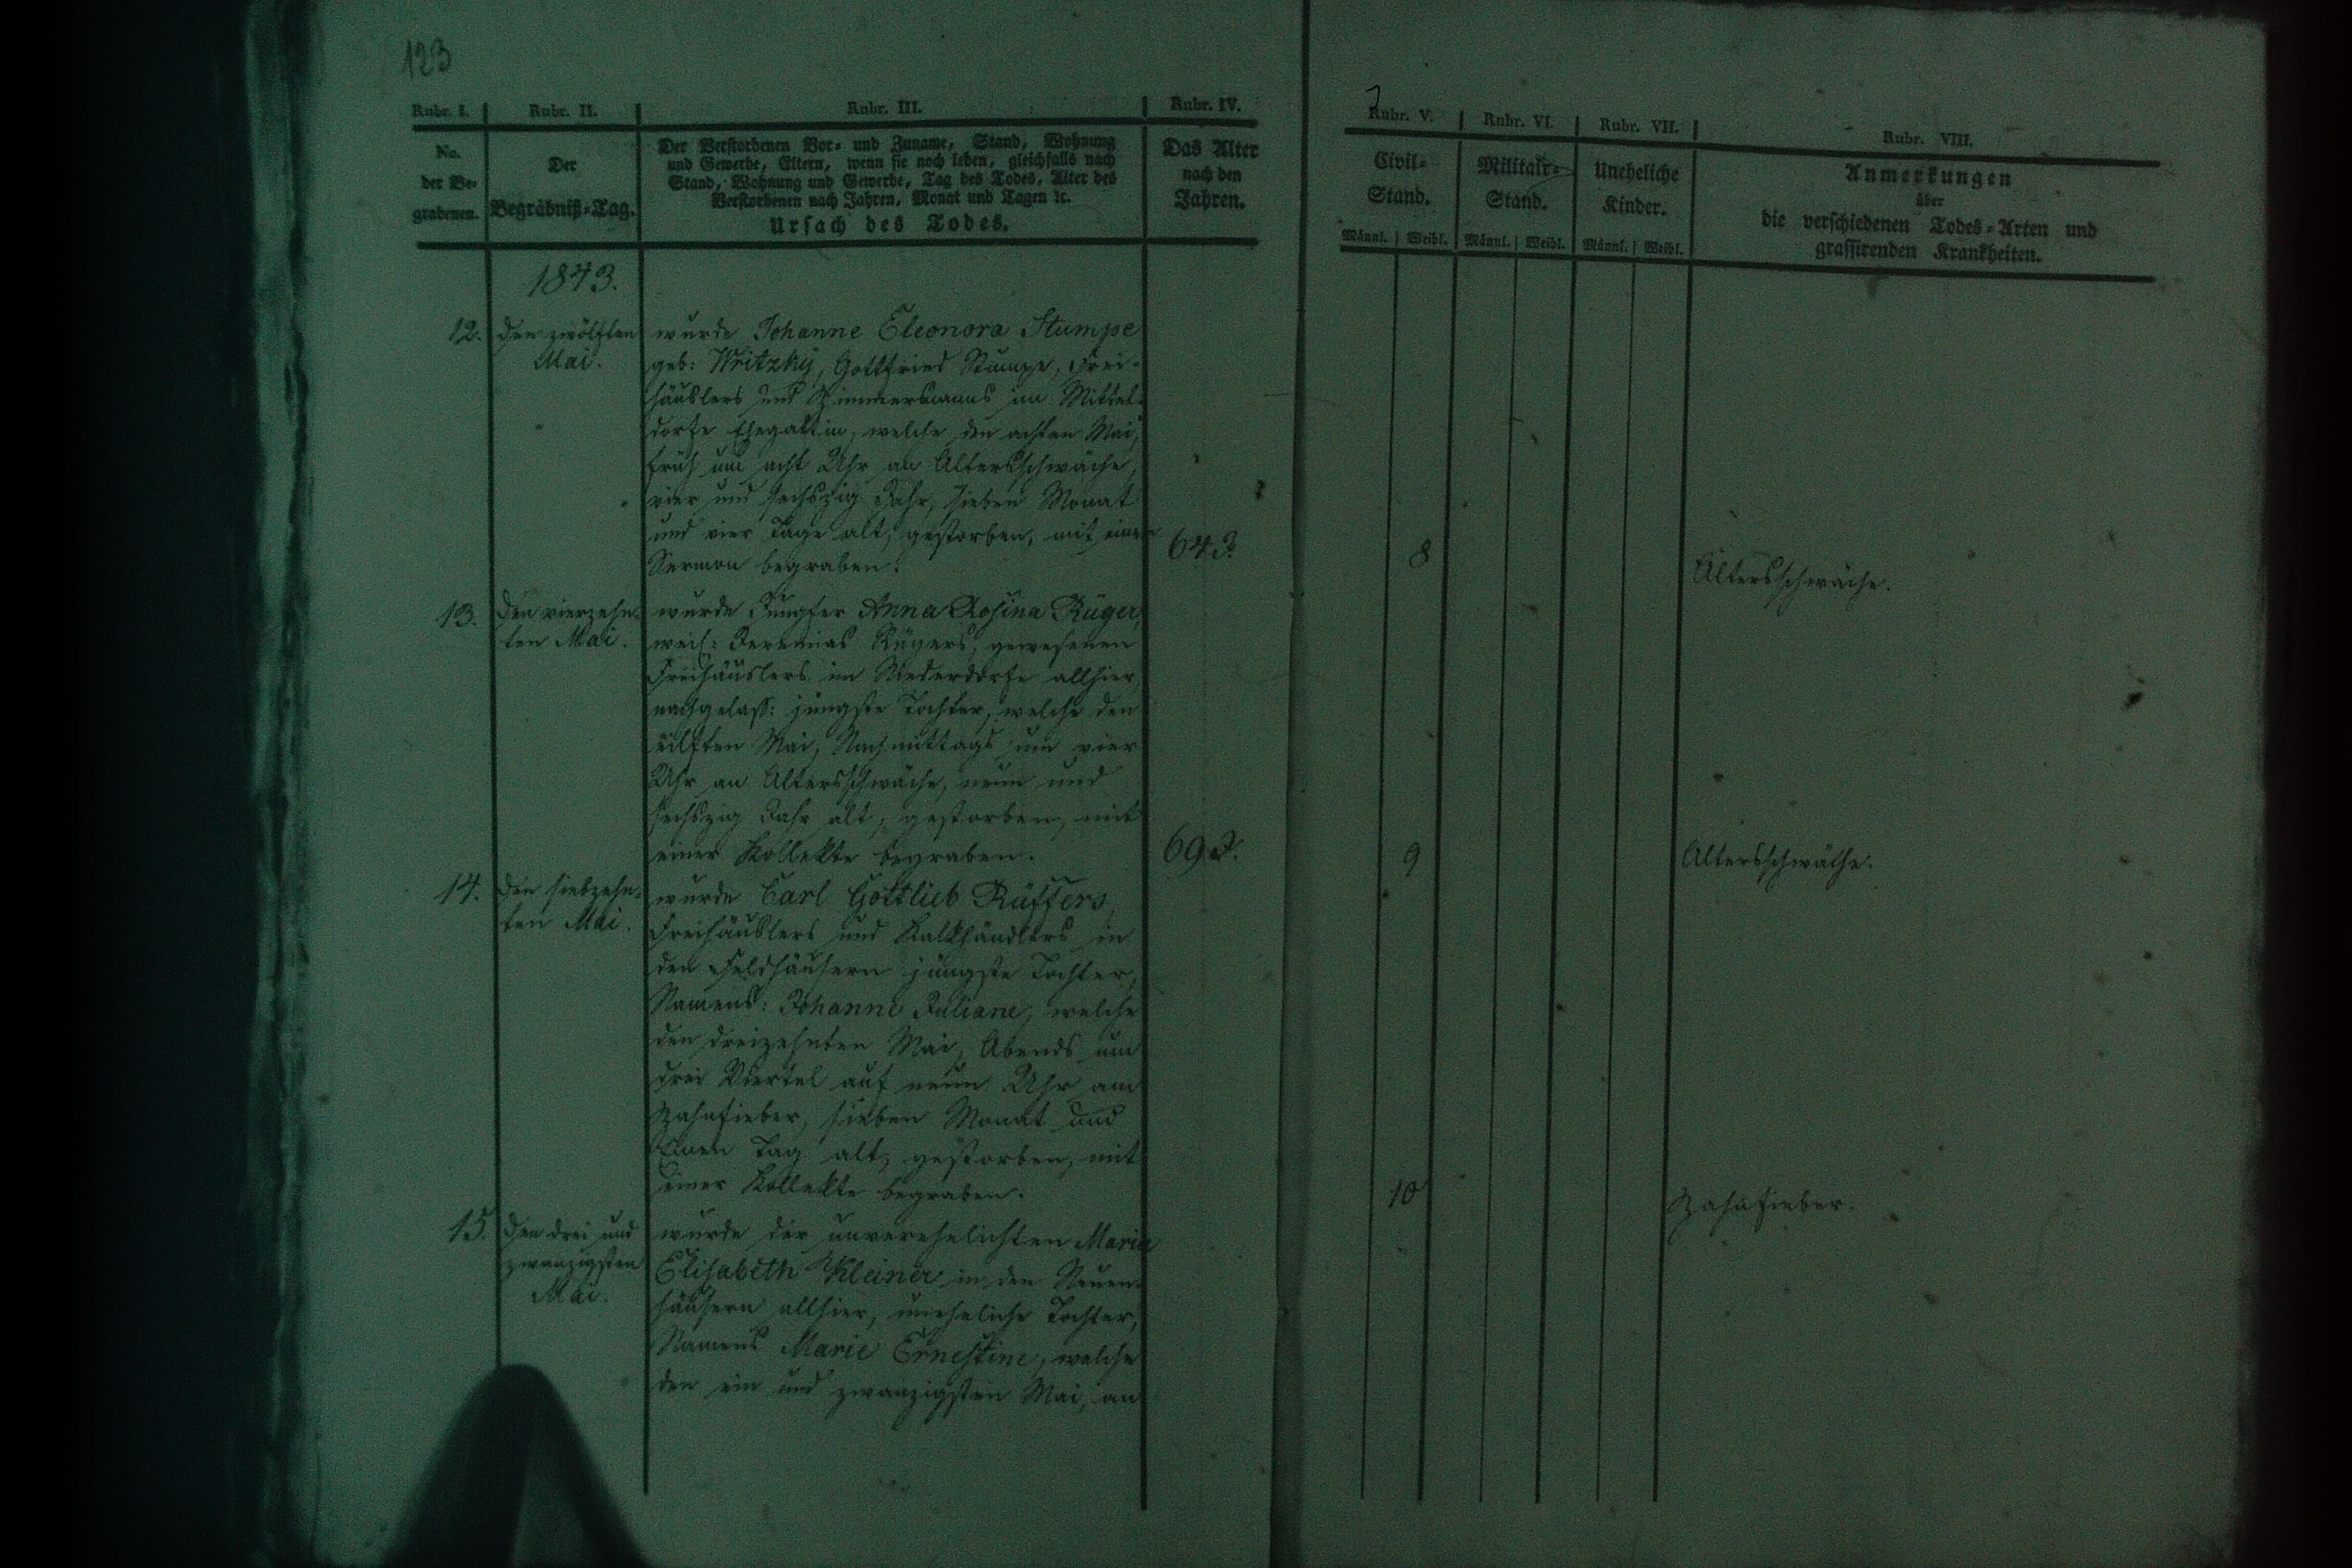 123
Rubr. I. Rubr. II. Rubr. III. Rubr. IV. Rubr. V. Rubr. VI. Rubr. VII. Rubr. VIII.
No. der Be-grabenen.
Der Begräbniß-Tag.
Der Verstorbenen Vor- und Zuname, Stand, Wohnung
und Gewerbe, Eltern, wenn sie noch leben, gleichfalls nach
Stand, Wohnung und Gewerbe, Tag des Todes, Alter des
Verstorbenen nach Jahren, Monat und Tagen ꝛc.
Ursach des Todes.
Das Alter
nach den
Jahren.
Civil-
Stand.
Männl. Weibl.
Militair-
Stand.
Männl. Weibl.
Uneheliche
Kinder.
Männl. Weibl.
Anmerkungen
über
die verschiedenen Todes-Arten und
grassirenden Krankheiten.
1843.
12. Den zwölften
Mai.
wurde Johanne Eleonora Stumpe
geb: Writzky, Gottfried Stumpe, Frei-
häuslers und Zimmermanns im Mittel-
dorfe Ehegattin, welche den achten Mai,
früh um acht Uhr an Altersschwäche,
vier und sechszig Jahr, sieben Monat
und vier Tage alt, gestorben, mit einer
Sermon begraben.
64 J.
8
Altersschwäche.
13. Den vierzehn-
ten Mai.
wurde Jungfer Anna Rosina Rüger,
weil: Jeremias Rügers, gewesenen
Freihäuslers im Niederdorfe allhier,
nachgelass: jüngste Tochter, welche den
eilften Mai, Nachmittags um vier
Uhr an Altersschwäche, neun und
sechszig Jahr alt, gestorben, mit
einer Kollekte begraben.
69 J.
9
Altersschwäche.
14. Den siebzehn-
ten Mai.
wurde Carl Gottlieb Rüffers,
Freihäuslers und Kalkhändlers in
den Feldhäusern jüngste Tochter,
Namens: Johanne Juliane, welche
den dreizehnten Mai, Abends um
drei Viertel auf neun Uhr am
Zahnfieber, sieben Monat und
Einen Tag alt, gestorben, mit
einer Kollekte begraben.
10
Zahnfieber.
15. Den drei und
zwanzigsten
Mai.
wurde der unverehelichten Maria
Elisabeth Kleiner in den Neuen-
häusern allhier, uneheliche Tochter,
Namens Marie Ernestine, welche
den ein und zwanzigsten Mai, an